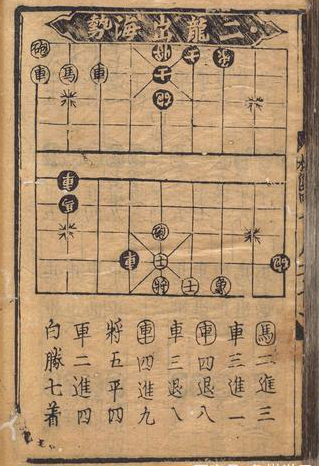 二龍出海勢
砲
車 馬 車
車
砲
車 士
將 士 象
馬二進三
車三進一
車四退八
車三退八
車四進九
將五平四
車二進四
白勝七着